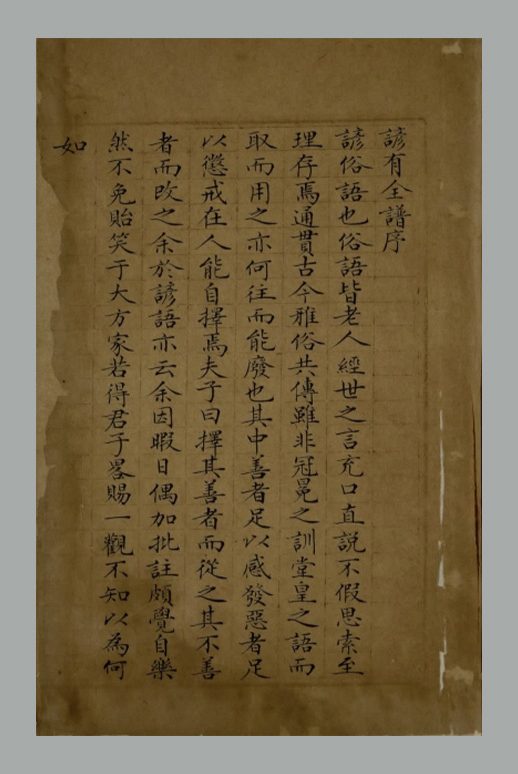 諺有全譜序
諺俗語也俗語皆老人經世之言充口直説不假思索至
理存焉通貫古今雅俗共傳雖非冠冕之訓堂皇之語而
取而用之亦何往而能廢也其中善者足以感發惡者足
以懲戒在人能自擇焉夫子曰擇其善者而從之其不善
者而改之余於諺語亦云余因暇日偶加批註頗覺自樂
然不免貽笑于大方家若得君子畧賜一觀不知以為何
如